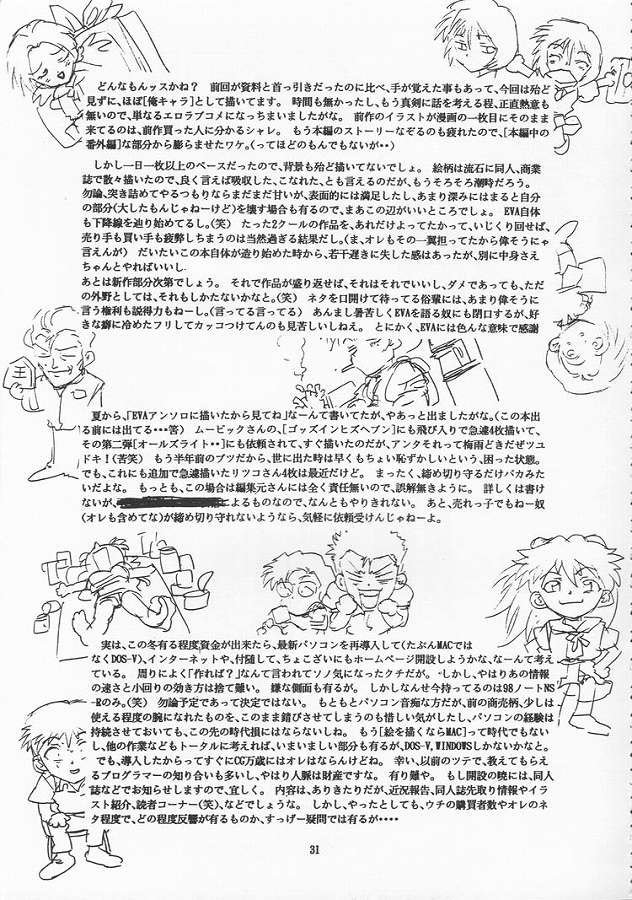 どんなもんッスかね？　前回が資料と首っ引きだったのに比べ、手が覚えた事もあって、今回は殆ど
見ずに、ほぼ[俺キャラ]として描いてます。　時間も無かったし、もう真剣に話を考える程、正直熱意も
無いので、単なるエロラブコメになっちまいましたがな。　前作のイラストが漫画の一枚目にそのまま
来てるのは、前作買った人に分かるシャレ。　もう本編のストーリーなぞるのも疲れたので、[本編中の
番外編]な部分から膨らませたワケ。(ってほどのもんでもないが・・)
しかし一日一枚以上のペースだったので、背景も殆ど描いてないでしょ。　絵柄は流石に同人、商業
誌で散々描いたので、良く言えば吸収した、こなれた、とも言えるのだが、もうそろそろ潮時だろう。
勿論、突き詰めてやるつもりならまだまだ甘いが、表面的には満足したし、あまり深みにはまると自分
の部分(大したもんじゃねーけど)を壊す場合も有るので、まあこの辺がいいところでしょ。　EVA自体
も下降線を辿り始めてるし。(笑)　たった2クールの作品を、あれだけよってたかって、いじくり回せば、
売り手も買い手も疲弊しちまうのは当然過ぎる結果だし。(ま、オレもその一翼担ってたから偉そうにゃ
言えんが)　だいたいこの本自体が造り始めた時から、若干遅きに失した感はあったが、別に中身さえ
ちゃんとやればいいし.
あとは新作部分次第でしょう。　それで作品が盛り返せば、それはそれでいいし、ダメであっても、ただ
の外野としては、それもしかたないかなと。(笑)　ネタを口開けて待ってる俗輩には、あまり偉そうに言
う権利も説得力もねーし。(言ってる言ってる)　あんまし暑苦しくEVAを語る奴にも閉口するが、好
きな癖に冷めたフリしてカッコつけてんのも見苦しいしねえ。　とにかく、EVAには色んな意味で感謝
王
夏から、「EVAアンソロに描いたから見てね」なーんて書いてたが、やあっと出ましたがな。(この本出
る前には出てる･･･筈)　ムービックさんの、[ゴッズインヒズヘブン]にも飛び入りで急遽4枚描いて、
その第二弾[オールズライト・・]にも依頼されて、すぐ描いたのだが、アンタそれって梅雨どきだぜツユ
ドキ！(苦笑)　もう半年前のブツだから、世に出た時は早くもちょい恥ずかしいという、困った状態。
でも、これにも追加で急遽描いたリツコさん4枚は最近だけど。　まったく、締め切り守るだけバカみた
いだよな。　もっとも、この場合は編集元さんには全く責任無いので、誤解無きように。　詳しくは書け
ないが、によるものなので、なんともやりきれない。　あと、売れっ子でもねー奴
(オレも含めてな)が締め切り守れないようなら、気軽に依頼受けんじゃねーよ。
実は、この冬有る程度資金が出来たら、最新パソコンを再導入して(たぶんMACでは
なくDOS-V)、インターネットや、付随して、ちょこざいにもホームページ開設しようかな、なーんて考え
ている。　周りによく「作れば？」なんて言われてソノ気になったクチだが。　しかし、やはりあの情報
の速さと小回りの効き方は捨て難い。　嫌な側面も有るが。　しかしなんせ今持ってるのは98ノートNS
-Rのみ。(笑)　勿論予定であって決定ではない。　もともとパソコン音痴な方だが、前の商売柄、少しは
使える程度の腕になれたものを、このまま錆びさせてしまうのも惜しい気がしたし、パソコンの経験は
持続させておいても、この先の時代損にはならないしね。　もう[絵を描くならMAC]って時代でもない
し、他の作業などもトータルに考えれば、いまいましい部分も有るが、DOS-V、WINDOWSしかないかなと。
でも、導入したからってすぐにCG万歳にはオレはならんけどね。　幸い、以前のツテで、教えてもらえ
るプログラマーの知り合いも多いし、やはり人脈は財産ですな。　有り難や。　もし開設の暁には、同人
誌などでお知らせしますので、宜しく。　内容は、ありきたりだが、近況報告、同人誌先取り情報やイラ
スト紹介、読者コーナー(笑)、などでしょうな。　しかし、やったとしても、ウチの購買者数やオレのネ
タ程度で、どの程度反響が有るものか、すっげー疑問では有るが・・・・
31